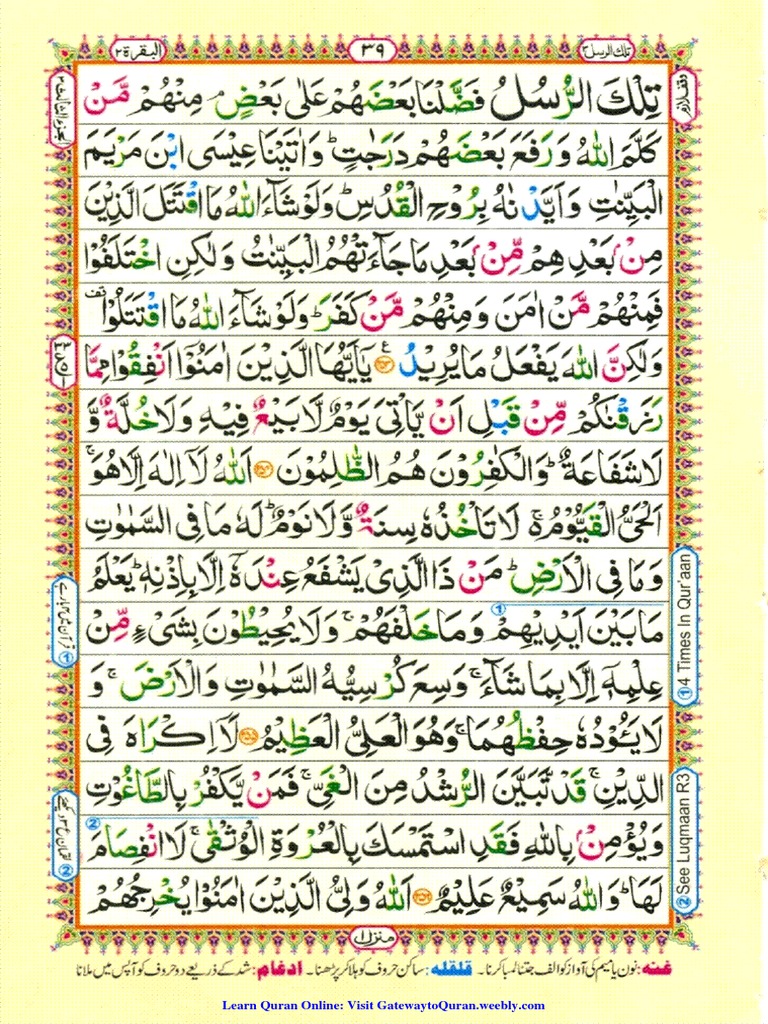 تلك الرسل ٣
٣٩
البقرة ٢
وقف لازم
الجزء الثالث ٣
تِلْكَ الرُّسُلُ فَضَّلْنَا بَعْضَهُمْ عَلٰى بَعْضٍ ۘ مِنْهُمْ مَّنْ
كَلَّمَ اللّٰهُ وَرَفَعَ بَعْضَهُمْ دَرَجٰتٍ ؕ وَاٰتَيْنَا عِيْسَى ابْنَ مَرْيَمَ
الْبَيِّنٰتِ وَاَيَّدْنٰهُ بِرُوْحِ الْقُدُسِ ؕ وَلَوْ شَآءَ اللّٰهُ مَا اقْتَتَلَ الَّذِيْنَ
مِنْۢ بَعْدِهِمْ مِّنْۢ بَعْدِ مَا جَآءَتْهُمُ الْبَيِّنٰتُ وَلٰكِنِ اخْتَلَفُوْا
فَمِنْهُمْ مَّنْ اٰمَنَ وَمِنْهُمْ مَّنْ كَفَرَ ؕ وَلَوْ شَآءَ اللّٰهُ مَا اقْتَتَلُوْا قف
وَلٰكِنَّ اللّٰهَ يَفْعَلُ مَا يُرِيْدُ ﴿۲۵۳﴾ ع يٰۤاَيُّهَا الَّذِيْنَ اٰمَنُوْۤا اَنْفِقُوْا مِمَّا
رَزَقْنٰكُمْ مِّنْ قَبْلِ اَنْ يَّاْتِىَ يَوْمٌ لَّا بَيْعٌ فِيْهِ وَلَا خُلَّةٌ وَّ
لَا شَفَاعَةٌ ؕ وَالْكٰفِرُوْنَ هُمُ الظّٰلِمُوْنَ ﴿۲۵۴﴾ اَللّٰهُ لَاۤ اِلٰهَ اِلَّا هُوَ ۚ
اَلْحَىُّ الْقَيُّوْمُ ۚ لَا تَاْخُذُهٗ سِنَةٌ وَّلَا نَوْمٌ ؕ لَهٗ مَا فِى السَّمٰوٰتِ
وَمَا فِى الْاَرْضِ ؕ مَنْ ذَا الَّذِىْ يَشْفَعُ عِنْدَهٗۤ اِلَّا بِاِذْنِهٖ ؕ يَعْلَمُ
مَا بَيْنَ اَيْدِيْهِمْ وَمَا خَلْفَهُمْ ۚ وَلَا يُحِيْطُوْنَ بِشَىْءٍ مِّنْ
عِلْمِهٖۤ اِلَّا بِمَا شَآءَ ۚ وَسِعَ كُرْسِيُّهُ السَّمٰوٰتِ وَالْاَرْضَ ۚ وَ
لَا يَئُوْدُهٗ حِفْظُهُمَا ۚ وَهُوَ الْعَلِىُّ الْعَظِيْمُ ﴿۲۵۵﴾ لَاۤ اِكْرَاهَ فِى
الدِّيْنِ ۙ قَدْ تَّبَيَّنَ الرُّشْدُ مِنَ الْغَىِّ ۚ فَمَنْ يَّكْفُرْ بِالطَّاغُوْتِ
وَيُؤْمِنْۢ بِاللّٰهِ فَقَدِ اسْتَمْسَكَ بِالْعُرْوَةِ الْوُثْقٰى ۗ لَا انْفِصَامَ
لَهَا ؕ وَاللّٰهُ سَمِيْعٌ عَلِيْمٌ ﴿۲۵۶﴾ اَللّٰهُ وَلِىُّ الَّذِيْنَ اٰمَنُوْا يُخْرِجُهُمْ
① 4 Times In Qur'aan
② See Luqmaan R3
① قرآن میں ۴ بار ہے
② لقمان رع ۳ دیکھئے
منزل ۱
غنه: نون یا میم کی آواز کو الف جتنا لمبا کرنا۔ قلقله: ساکن حروف کو ہلا کر پڑھنا۔ ادغام: شد کے ذریعے دو حروف کو آپس میں ملانا
Learn Quran Online: Visit GatewaytoQuran.weebly.com